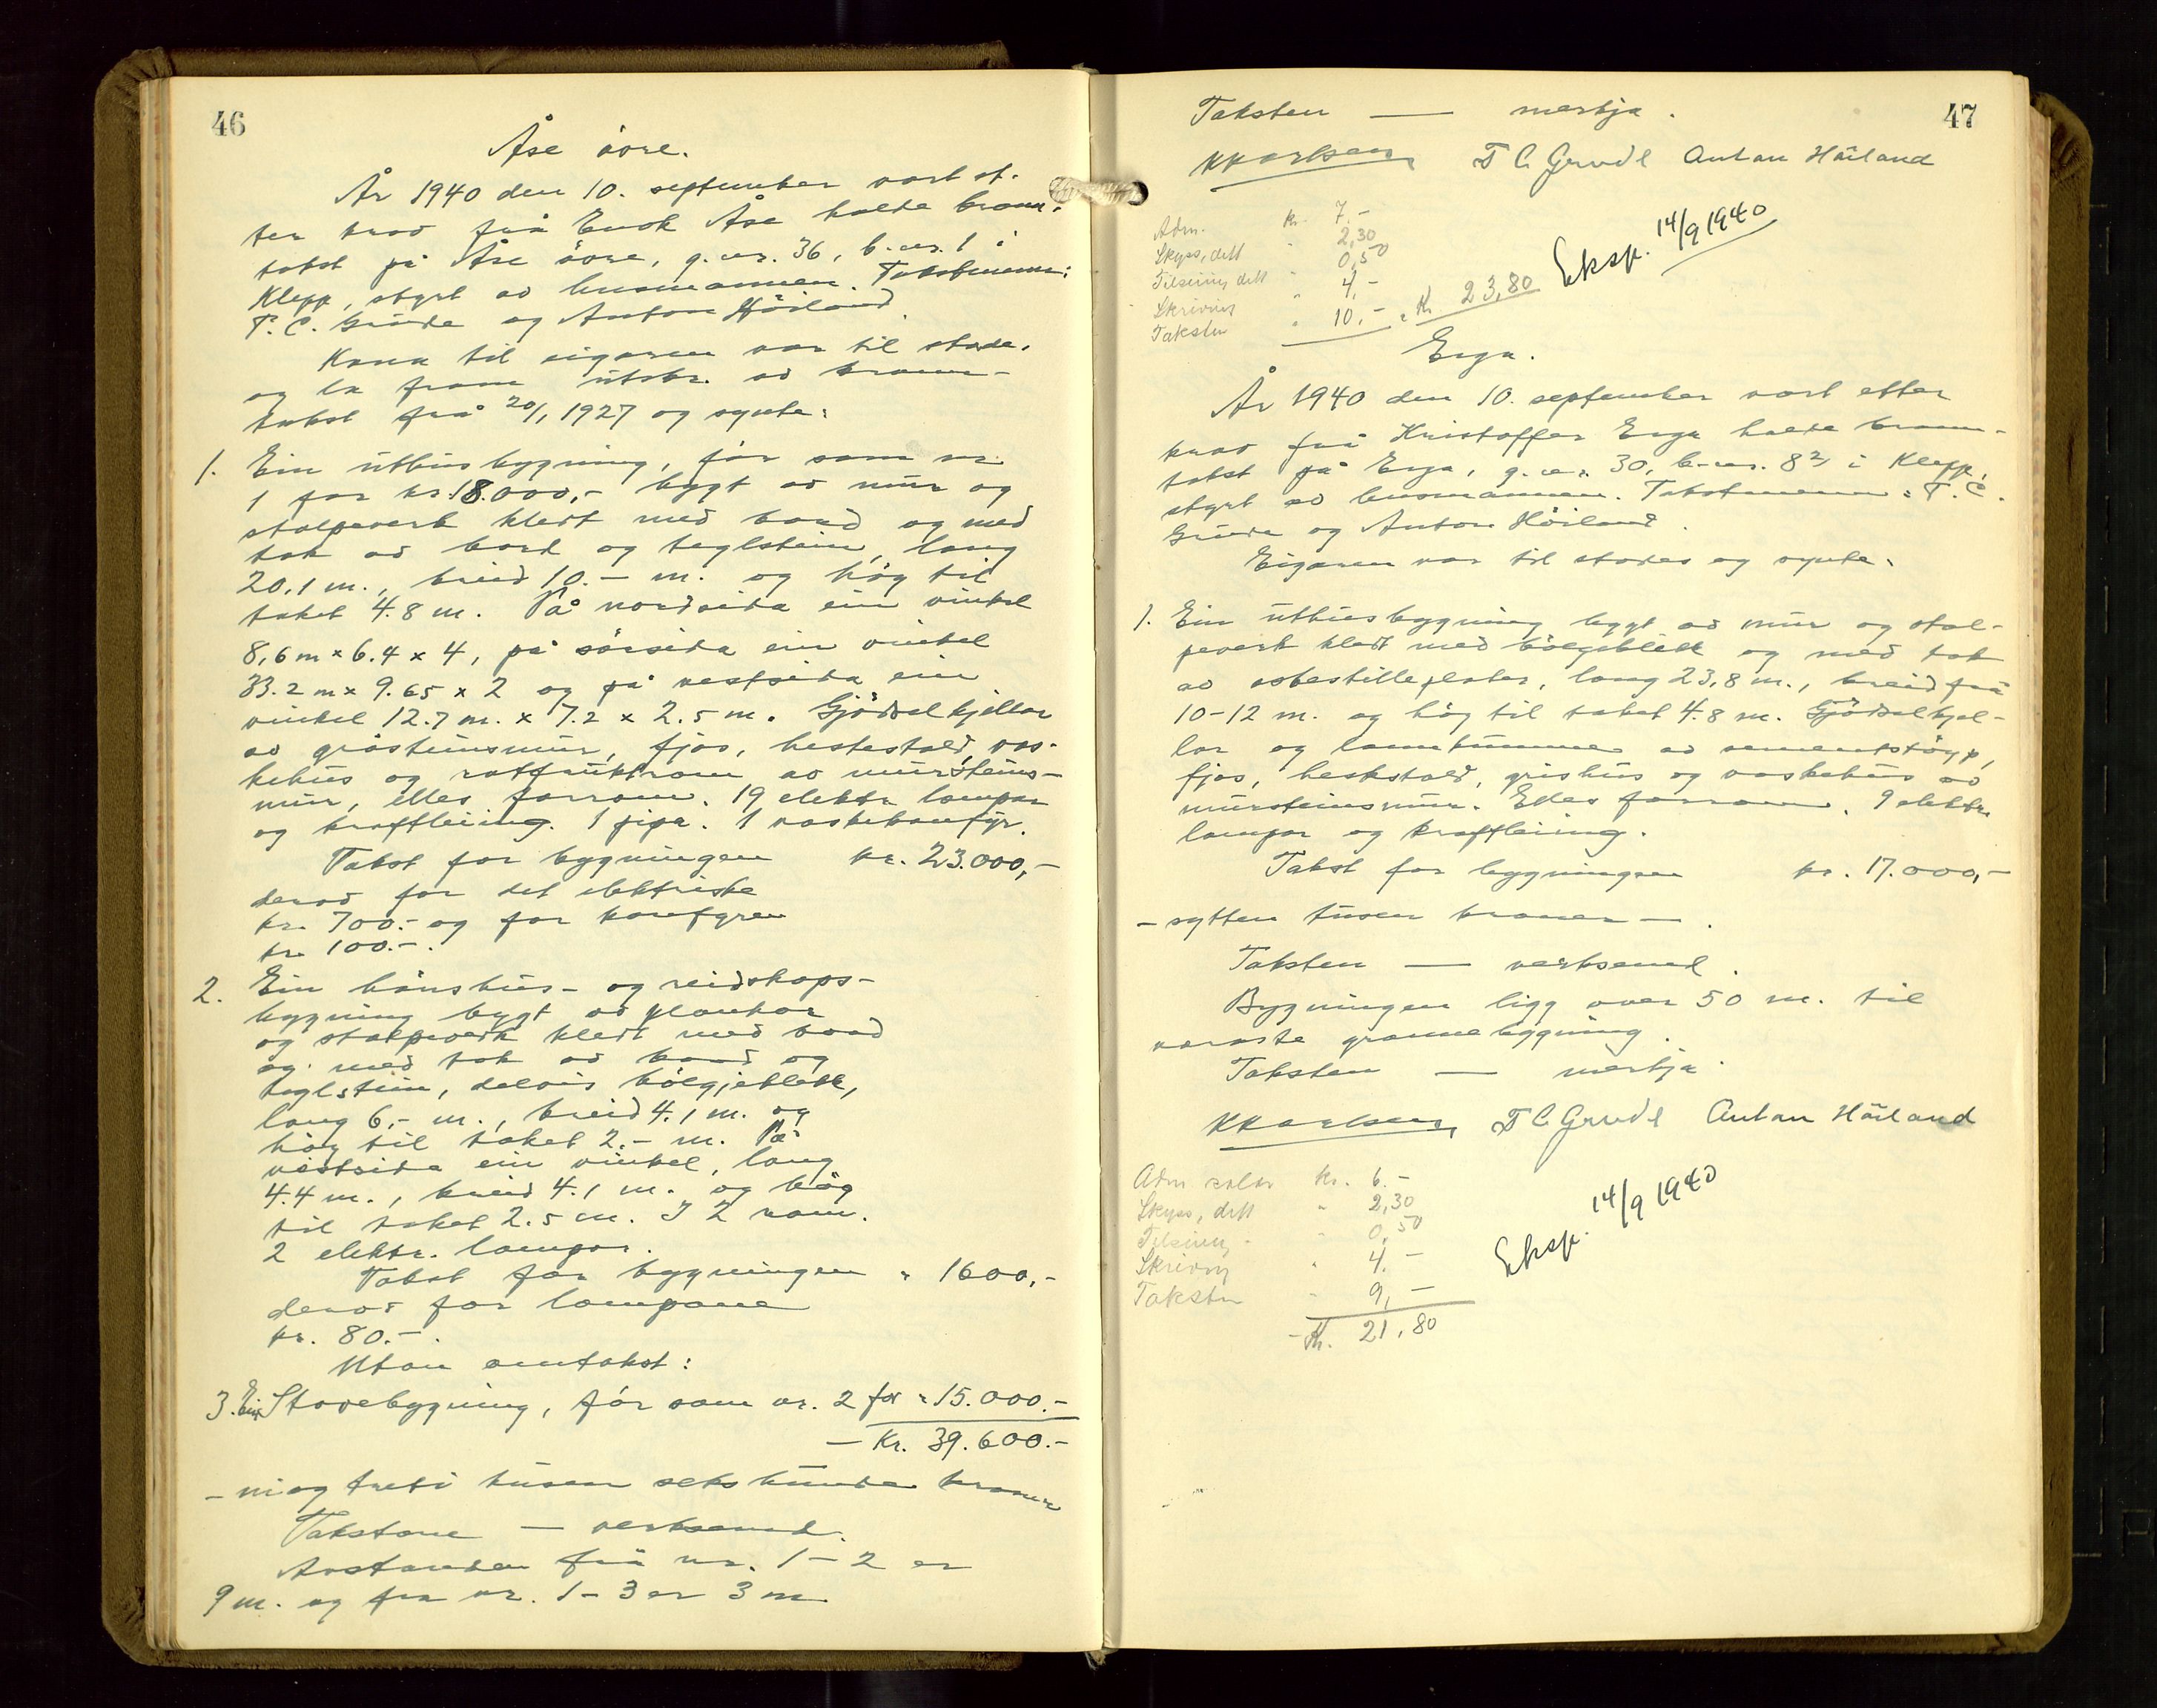 46
Åse øvre.
År 1940 den 10. september vart et-
ter krav frå Enok Åse halde brann-
takst på Åse øvre, g.nr. 36, b.nr. 1 i
Klepp, styrt av lensmannen. Takstmenn:
T. C. Grude og Anton Höiland.
Kona til eigaren var til stade,
og la fram utskr. av brann-
takst frå 20/1 1927 og synte:
1. Ein uthusbygning, før som nr.
1 for kr. 18.000,- bygt av mur og
stolpeverk kledt med bord og med
tak av bord og teglstein, lang
20,1 m., breid 10.- m. og høg til
taket 4.8 m. På nordsida ein vinkel
8,6 m x 6.4 x 4, på sørsida ein vinkel
33.2 m x 9.65 x 2 og på vestsida ein
vinkel 12.7 m. x 7.2 x 2.5 m. Gjødselkjellar
av gråsteinsmur, fjøs, hestestald, vas-
kehus og rotfruktrom av mursteins-
mur, elles forrom. 19 elektr. lampor
og kraftleiing. 1 pipa. 1 vaskekomfyr.
Takst for bygningen kr. 23.000,-
derav for det elektriske
kr. 700.- og for komfyren
kr. 100.-.
2. Ein hønshus- og reidskaps-
bygning bygt av plankar
og stolpeverk kledt med bord
og med tak av bord og
teglstein, delvis bølgjeblekk,
lang 6,- m., breid 4.1 m. og
høg til taket 2.- m. På
vestsida ein vinkel, lang
4.4 m., breid 4.1 m. og høg
til taket 2.5 m. I 2 rom.
2 elektr. lampor.
Takst for bygningen " 1600,-
derav for lampone
kr. 80.-.
Utan omtakst:
3. Ein Stovebygning, før som nr. 2 for " 15.000.-
- Kr. 39.600.-
- niogtreti tusen sekshundre kroner
Takstane — verksemd.
Avstanden frå nr. 1 - 2 er
9 m. og fra nr. 1 - 3 er 3 m
47
Taksten — merkja.
KKarlsen T C Grude Anton Höiland
Adm. kr. 7.-
Skyss, dett " 2,30
Tilseiing dett " 0,50
Skriving " 4,-
Taksten " 10,- = Kr 23,80
Eksp. 14/9 1940
Erga.
År 1940 den 10. september vart etter
krav frå Kristoffer Erga halde brann-
takst på Erga, g.nr. 30, b.nr. 82, i Klepp,
styrt av lensmannen. Takstmenn: T. C.
Grude og Anton Höiland.
Eigaren var til stades og synte:
1. Ein uthusbygning bygt av mur og stol-
peverk kledt med bølgeblekk og med tak
av asbestilleplater, lang 23,8 m., breid frå
10-12 m. og høg til taket 4.8 m. Gjødselkjel-
lar og landkummar av sementstøyp,
fjøs, hestestald, grishus og vaskehus av
mursteinsmur. Elles forrom. 9 elektr.
lampor og kraftleiing.
Takst for bygningen kr. 17.000,-
- sytten tusen kroner - .
Taksten — verksemd.
Bygningen ligg over 50 m. til
næraste grannebygning.
Taksten — merkja.
KKarlsen T C Grude Anton Höiland
Adm. Kr. 6.-
Skyss, dett " 2,30
Tilseiing " 0,50
Skriving " 4.-
Taksten " 9,-
- Kr. 21,80
Eksp. 14/9 1940